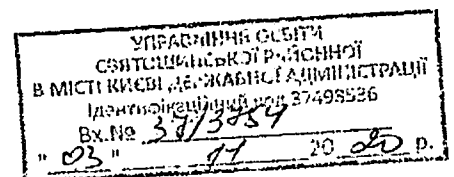 УПРАВЛІННЯ ОСВІТИ
СВЯТОШИНСЬКОЇ РАЙОННОЇ
В МІСТІ КИЄВІ ДЕРЖАВНОЇ АДМІНІСТРАЦІЇ
Ідентифікаційний код 37498536
Вх.№ 37/3754
" 03 " 11 20 20 р.